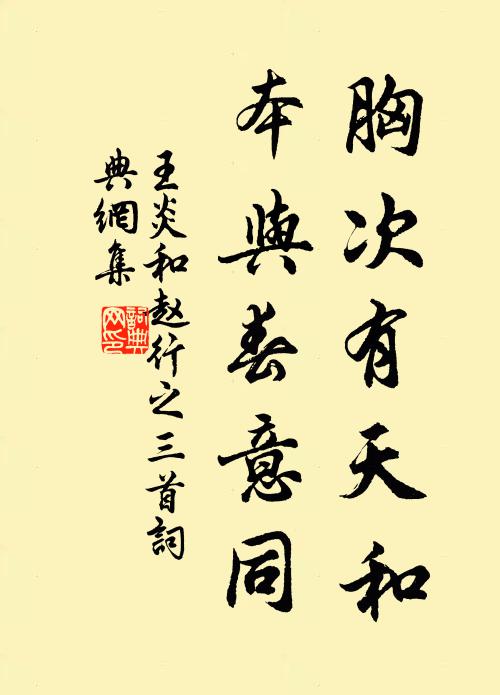 胸次有天和
本與春意同
王炎和赵行之三首詞
典網集
詞典
网印